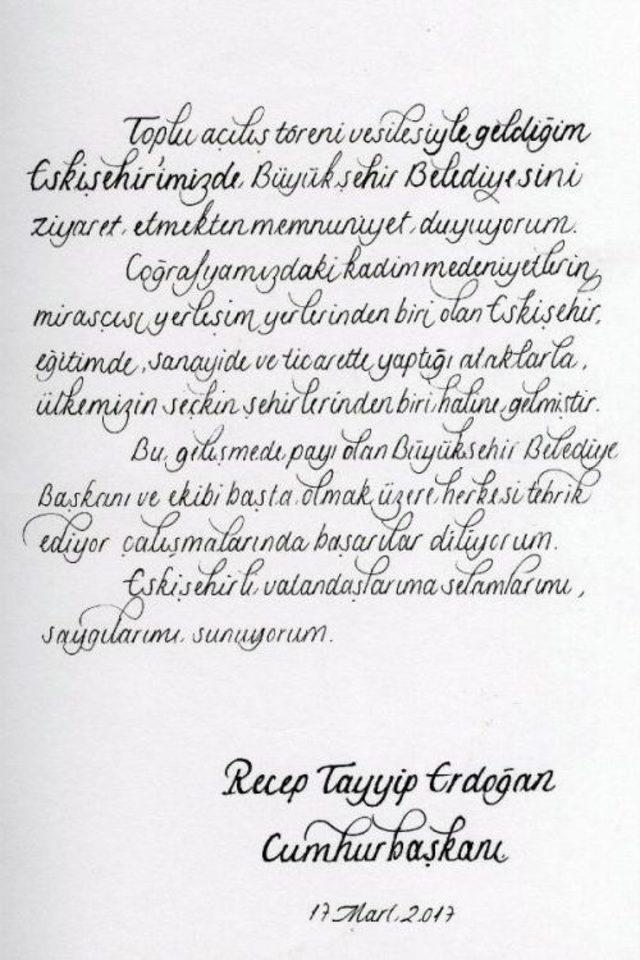 Toplu açılış töreni vesilesiyle geldiğim
Eskişehir'imizde, Büyükşehir Belediyesini
ziyaret etmekten memnuniyet duyuyorum.
Coğrafyamızdaki kadim medeniyetlerin
mirasçısı, yerleşim yerlerinden biri olan Eskişehir,
eğitimde, sanayide ve ticarette yaptığı ataklarla,
ülkemizin seçkin şehirlerinden biri haline gelmiştir.
Bu gelişmede payı olan Büyükşehir Belediye
Başkanı ve ekibi başta olmak üzere herkesi tebrik
ediyor çalışmalarında başarılar diliyorum.
Eskişehirli vatandaşlarıma selamlarımı,
saygılarımı sunuyorum.
Recep Tayyip Erdoğan
Cumhurbaşkanı
17 Mart 2017